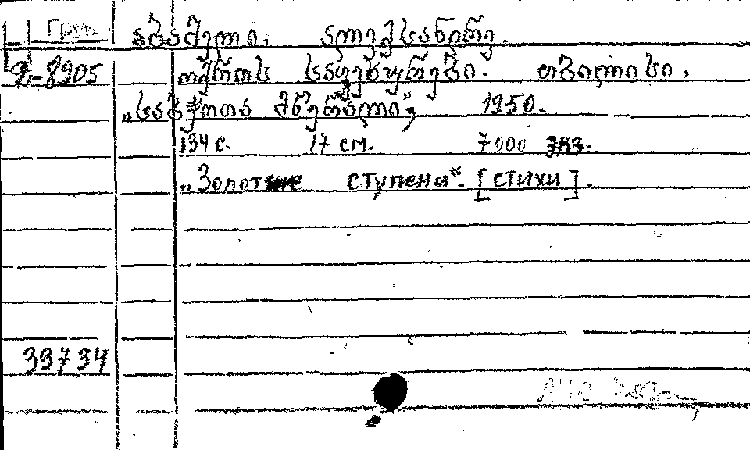 Груз
აბაშელი, ალექსანდრე.
2-8905 ოქროს საფეხურები. თბილისი,
„საბჭოთა მწერალი“, 1950.
134 с. 17 см. 7000 экз.
„Золотые ступени“. [стихи].
39734